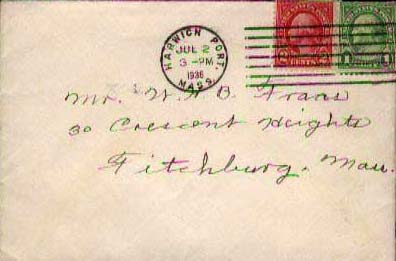 HARWICH PORT
JUL 2
3-PM
1936
MASS.
2 CENTS 2
1 1
Mr. W. A. B. Frans
30 Crescent Heights
Fitchburg, Mass.